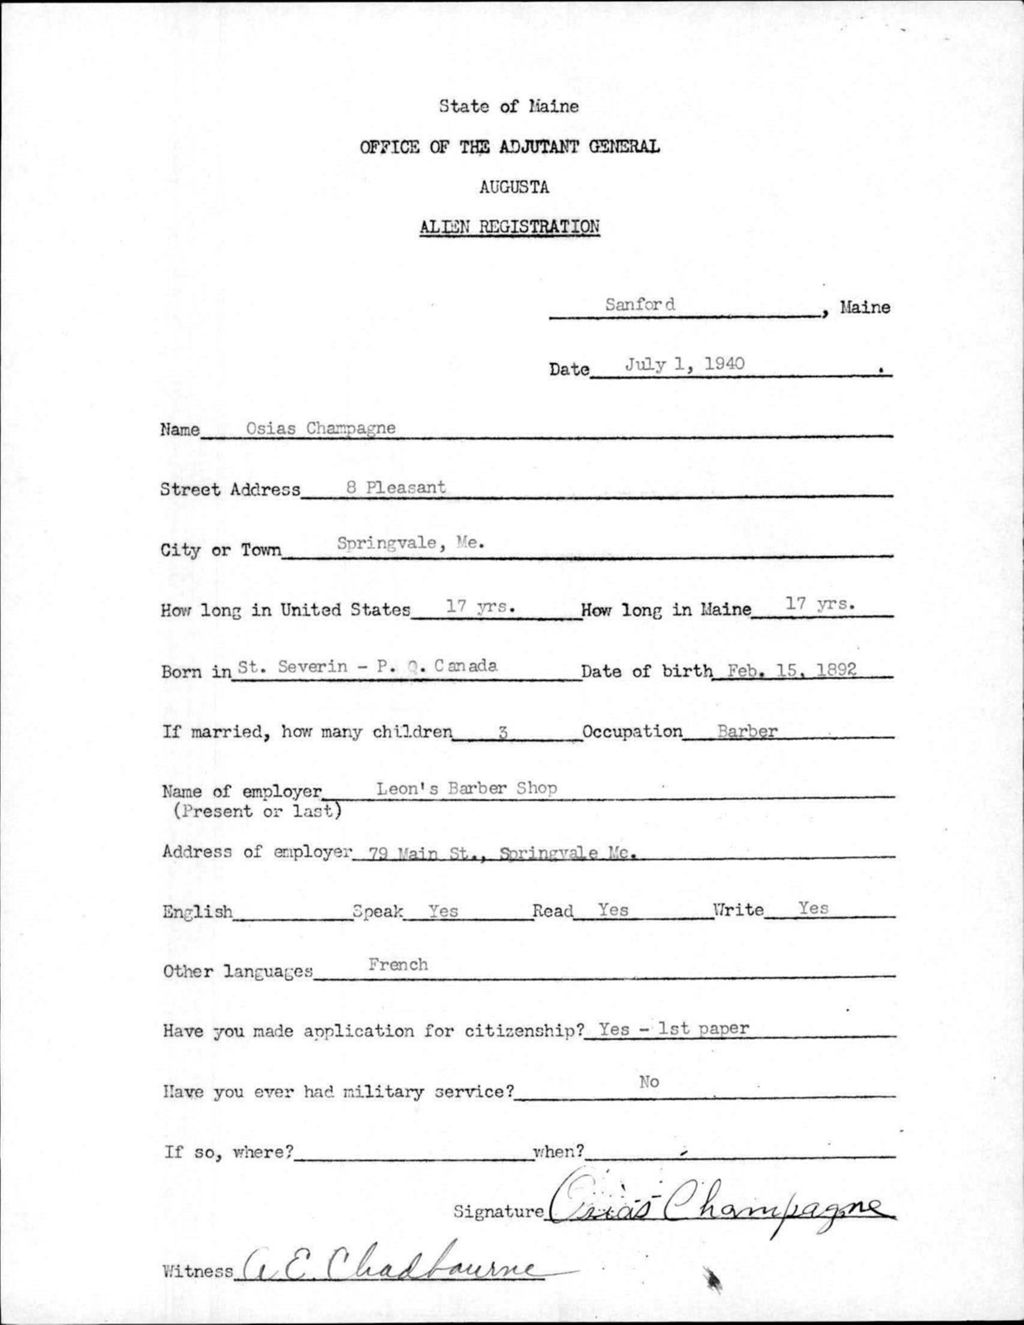 State of Maine
OFFICE OF THE ADJUTANT GENERAL
AUGUSTA
ALIEN REGISTRATION
Sanford, Maine
Date July 1, 1940.
Name Osias Champagne
Street Address 8 Pleasant
City or Town Springvale, Me.
How long in United States 17 yrs. How long in Maine 17 yrs.
Born in St. Severin - P. Q. Canada Date of birth Feb. 15, 1892
If married, how many children 3 Occupation Barber
Name of employer Leon's Barber Shop
(Present or last)
Address of employer 79 Main St., Springvale Me.
English Speak Yes Read Yes Write Yes
Other languages French
Have you made application for citizenship? Yes - 1st paper
Have you ever had military service? No
If so, where? when?
Signature Osias Champagne
Witness A. E. Chadbourne